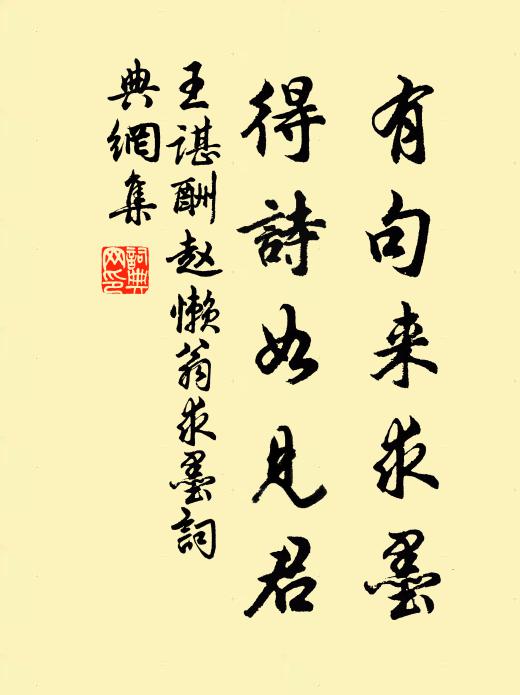 有句来求墨
得詩如見君
王谌酬赵懒翁求墨詞
典網集
詞典
网印